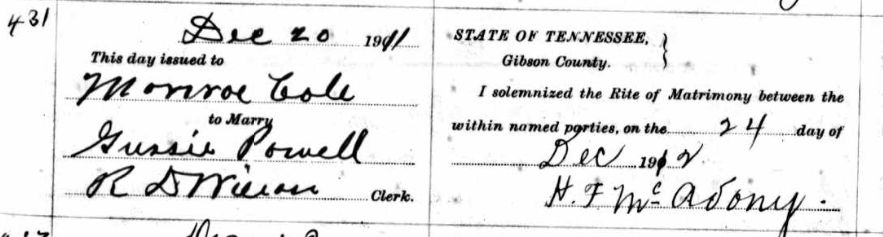 431
Dec 20 1911
This day issued to
Monroe Cole
to Marry
Gussie Powell
R D Wilson Clerk.
STATE OF TENNESSEE,
Gibson County.
I solemnized the Rite of Matrimony between the
within named parties, on the 24 day of
Dec 1912
H. F. McAdony.